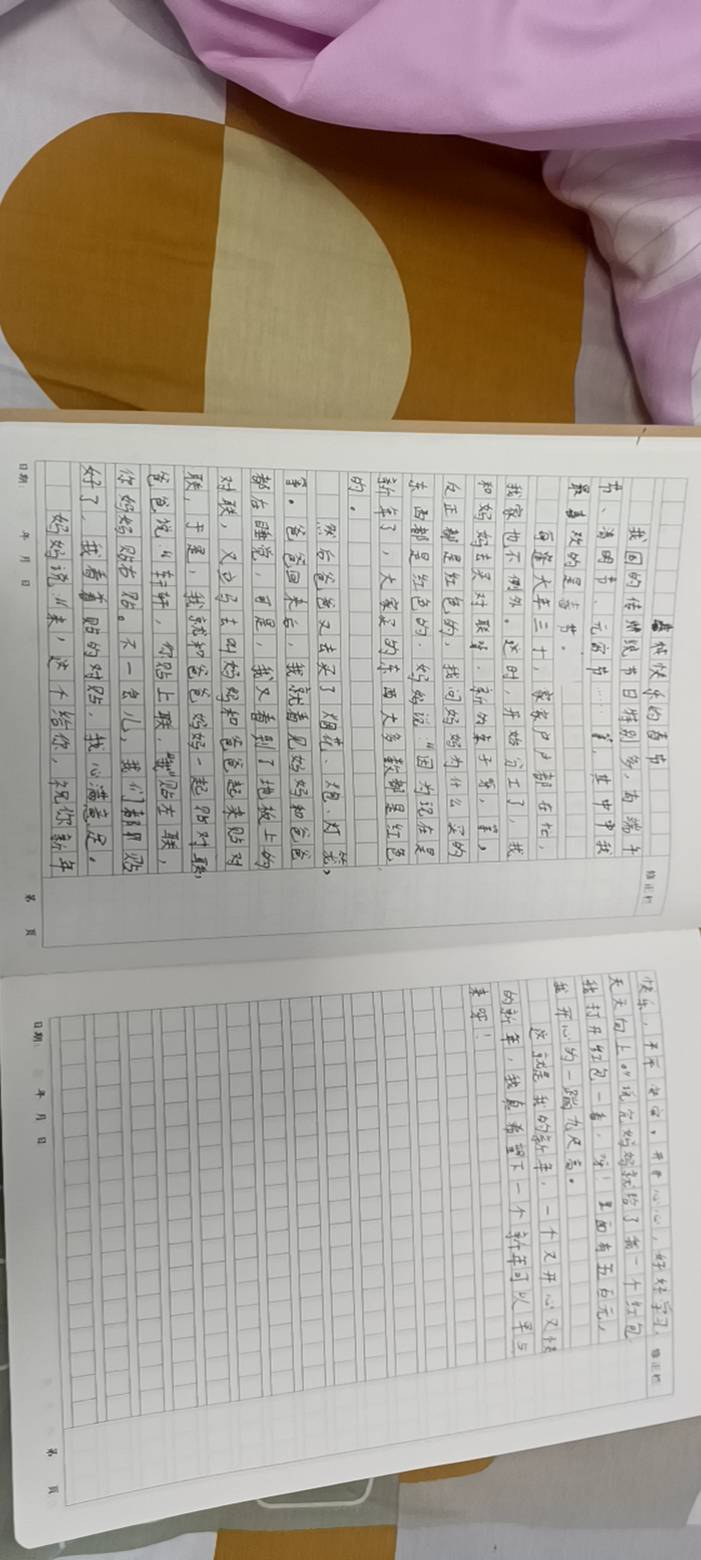 快乐的春节
修正栏
我国的传统节日特别多，有端午
节、清明节、元宵节……，其中我
最喜欢的是春节。
每逢大年三十，家家户户都在忙，
我家也不例外。这时，开始分工了，我
和妈妈去买对联、新的
反正都是红色的，我问妈妈为什么买的
东西都是红色的，妈妈说：“因为现在是
新年了，大家买的东西大多数都是红色
的。
然后爸爸又去买了烟花、炮、灯笼，
等爸爸回来后，我就看见妈妈和爸爸
都在睡觉，可是，我又看到了地板上的
对联，又立马去叫妈妈和爸爸起来贴对
联，于是，我就和爸爸妈妈一起贴对联，
爸爸说：“轩轩，你贴上联，我贴左联，
你妈妈贴右贴。不一会儿，我们都贴
好了，我看着贴的对贴，我心满意足。
妈妈说：“来，这个给你，祝你新年
日期： 年 月 日
第 页
快乐，平平安安，开开心心，好好学习，
修正栏
天天向上。”说完妈妈就给了我一个红包
我打开红包一看，呀！里面有五百元，
我开心的一蹦九尺高。
这就是我的新年，一个又开心又快
的新年，我真希望下一个新年可以早点
来呀！
日期： 年 月 日
第 页